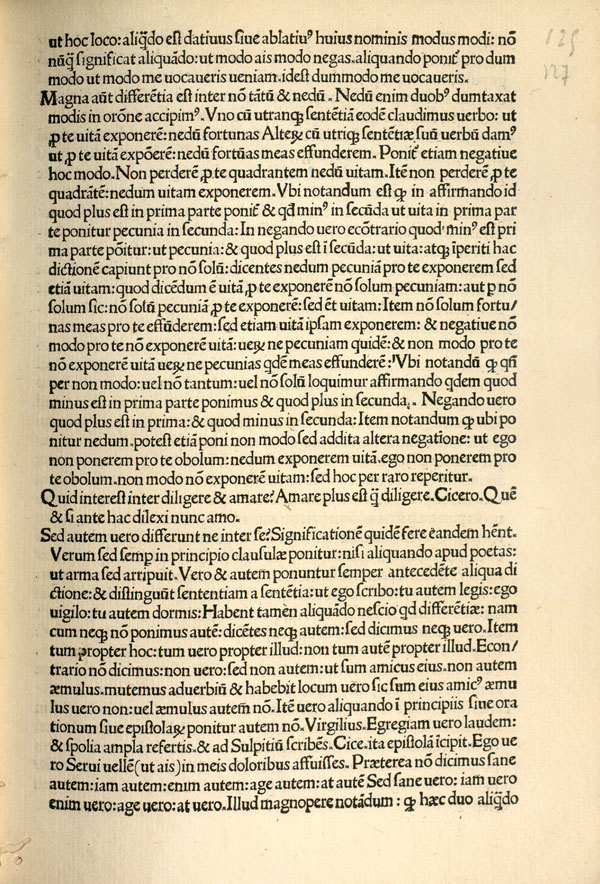 125
127
ut hoc loco: aliq̃do est datiuus siue ablatiuꝰ huius nominis modus modi: nō
nūq̃ significat aliquādo: ut modo ais modo negas. aliquando poniť pro dum
modo ut modo me uocaueris ueniam. idest dummodo me uocaueris.
Magna aūt differētia est inter nō tātū & nedū. Nedū enim duobꝰ dumtaxat
modis in orōne accipimꝰ. Vno cū utranqȝ sentētiā eodē claudimus uerbo: ut
ꝓ te uitā exponerē: nedū fortunas Alteꝝ cū utriqȝ sentētiæ suū uerbū damꝰ
ut ꝓ te uitā expōerē: nedū fortūas meas effunderem. Poniť etiam negatiue
hoc modo. Non perderē ꝓ te quadrantem nedū uitam. Itē non perderē ꝓ te
quadrātē: nedum uitam exponerem. Vbi notandum est ꝙ in affirmando id
quod plus est in prima parte poniť & qd̄ minꝰ in secūda ut uita in prima par
te ponitur pecunia in secunda: In negando uero ecōtrario quod minꝰ est pri
ma parte pōitur: ut pecunia: & quod plus est ī secūda: ut uita: atqȝ īperiti hac
dictionē capiunt pro nō solū: dicentes nedum pecuniā pro te exponerem sed
etiā uitam: quod dicēdum ē uitā ꝓ te exponerē nō solum pecuniam: aut p nō
solum sic: nō solū pecuniā ꝓ te exponerē: sed ēt uitam: Item nō solum fortu/
nas meas pro te effūderem: sed etiam uitā ipsam exponerem: & negatiue nō
modo pro te nō exponerē uitā: ueꝝ ne pecuniam quidē: & non modo pro te
nō exponerē uitā ueꝝ ne pecunias qdē meas effunderē: Vbi notandū ꝙ qñ
per non modo: uel nō tantum: uel nō solū loquimur affirmando qdem quod
minus est in prima parte ponimus & quod plus in secunda. Negando uero
quod plus est in prima: & quod minus in secunda: Item notandum ꝙ ubi po
nitur nedum. potest etiā poni non modo sed addita altera negatione: ut ego
non ponerem pro te obolum: nedum exponerem uitā. ego non ponerem pro
te obolum. non modo nō exponerē uitam: sed hoc per raro reperitur.
Quid interest inter diligere & amare? Amare plus est q̃ diligere. Cicero. Quē
& si ante hac dilexi nunc amo.
Sed autem uero differunt ne inter se? Significationē quidē fere eandem hēnt.
Verum sed semp in principio clausulæ ponitur: nisi aliquando apud poetas:
ut arma sed arripuit. Vero & autem ponuntur semper antecedēte aliqua di
ctione: & distinguūt sententiam a sentētia: ut ego scribo: tu autem legis: ego
uigilo: tu autem dormis: Habent tamen aliquādo nescio qd differētiæ: nam
cum neqȝ nō ponimus autē: dicētes neqȝ autem: sed dicimus neqȝ uero. Item
tum propter hoc: tum uero propter illud: non tum autē propter illud. Econ/
trario nō dicimus: non uero: sed non autem: ut sum amicus eius. non autem
æmulus. mutemus aduerbiū & habebit locum uero sic sum eius amicꝰ æmu
lus uero non: uel æmulus autem nō. Itē uero aliquando ī principiis siue ora
tionum siue epistolaꝝ ponitur autem nō. Virgilius. Egregiam uero laudem:
& spolia ampla refertis. & ad Sulpitiū scribēs. Cice. ita epistolā īcipit. Ego ue
ro Serui uellē (ut ais) in meis doloribus affuisses. Præterea nō dicimus sane
autem: iam autem: enim autem: age autem: at autē Sed sane uero: iam uero
enim uero: age uero: at uero. Illud magnopere notādum : ꝙ hæc duo aliq̃do